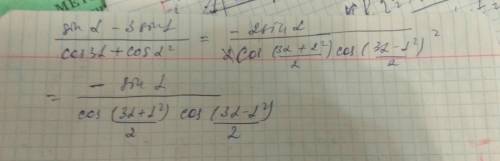 (sin α - 3 sin α) / (cos 3α + cos α²) = (- 2 sin α) / (2 cos ((3α + α²)/2) cos ((3α - α²)/2))
= (- sin α) / (cos ((3α + α²)/2) cos ((3α - α²)/2))